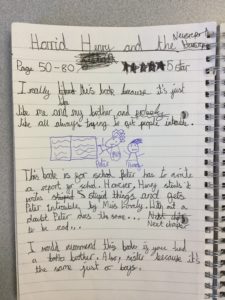 Horrid Henry and the
November
Page 50-80
5 star
I really this book because it's just
like
like me and my brother and
like all always trying to get people in
Peter
Miss
This book is for school Peter has to write
a report for school. However, Henry steals it
writes 5 stupid things and gets
Peter in trouble by Miss Lovely. With out a
doubt Peter does the same...
Next chap
to be read...
I would recommend this book if you had
a brother. Also, sister because it's
the same just or boys.